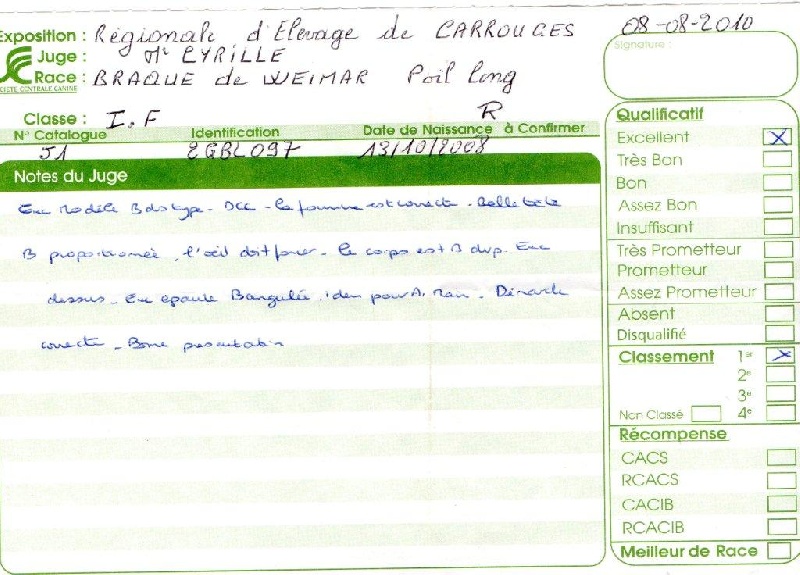 Exposition : Régionale d'Elevage de CARROUGES 08-08-2010
Juge : Mr CYRILLE
Race : BRAQUE de WEIMAR Poil long
SOCIÉTÉ CENTRALE CANINE
Signature :
Classe : I.F R
N° Catalogue Identification Date de Naissance à Confirmer
51 2GBL097 13/10/2008
Notes du Juge
Exc modèle B de type - DCC - la femme est correcte - Belle tête
B proportionnée, l'œil doit foncer - le corps est B dvp. Exc
dessus - Exc épaule B angulée, idem pour A. Main - Démarche
correcte - Bonne présentation
Qualificatif
Excellent X
Très Bon
Bon
Assez Bon
Insuffisant
Très Prometteur
Prometteur
Assez Prometteur
Absent
Disqualifié
Classement 1er X
2e
3e
Non Classé 4e
Récompense
CACS
RCACS
CACIB
RCACIB
Meilleur de Race